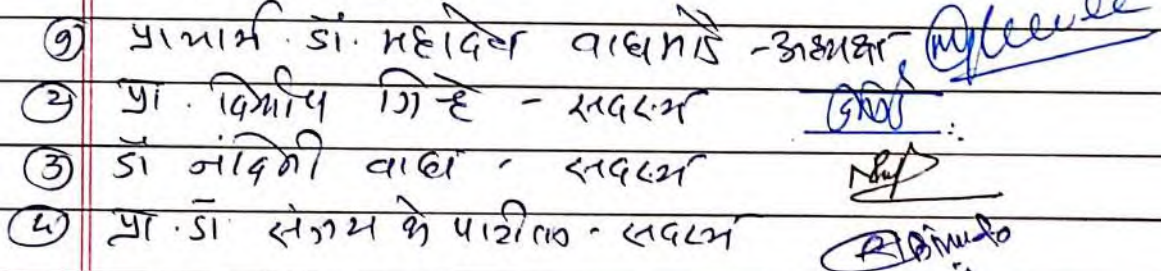 १) प्राचार्य डॉ. महादेव वाघमारे - अध्यक्ष
२) प्रा. गिऱ्हे - सदस्य
३) डॉ नंदिनी वाघ - सदस्य
४) प्रा. डॉ. संजय के पाटील - सदस्य